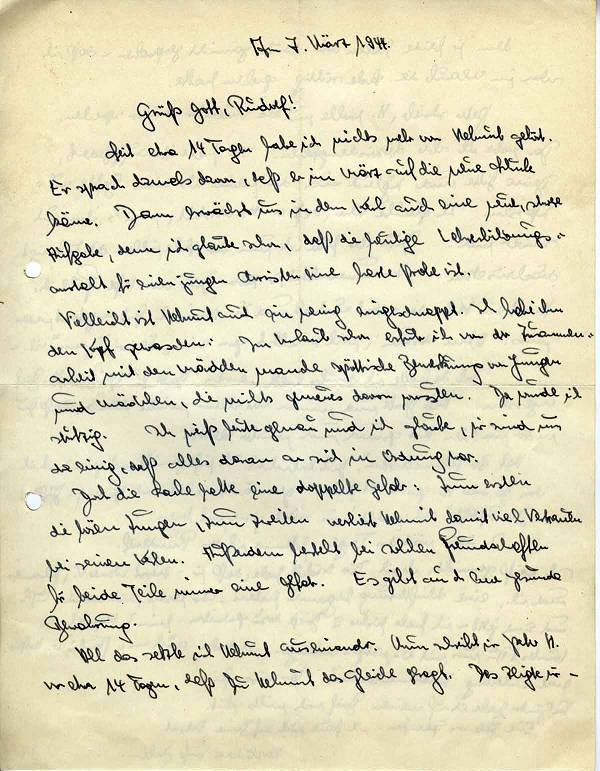 7. März 1944.
Grüß Gott, Rudolf!
Seit etwa 14 Tagen habe ich nichts mehr von Helmut gehört.
Er sprach damals davon, daß er im März auf die neue Schule
käme. Dann erwächst uns in dem Kerl auch eine neue, schwere
Aufgabe, denn ich glaube schon, daß die heutige Lehrerbildungs-
anstalt für einen jungen Christen eine harte Probe ist.
Vielleicht ist Helmut auch ein wenig eingeschnappt. Ich habe ihm
den Kopf gewaschen. Im Urlaub schon erfuhr ich von der Zusammen-
arbeit mit den Mädchen manche spöttische Bemerkung von Jungen
und Mädchen, die nichts genaues davon wussten. Da wurde ich
stutzig. Ich weiß heute genau und ich glaube, wir sind uns
da einig, daß alles daran an sich in Ordnung war.
Doch die Sache hatte eine doppelte Gefahr: zum ersten
die bösen Zungen, zum zweiten verliert Helmut damit viel Vertrauen
bei seinen Kerlen. Außerdem besteht bei solchen Freundschaften
für beide Teile immer eine Gefahr. Es gibt auch eine gesunde
All das setzte ich Helmut auseinander. Nun schrieb mir H.
vor etwa 14 Tagen, daß Du Helmut das Gleiche sagst. Das zeigte mir -